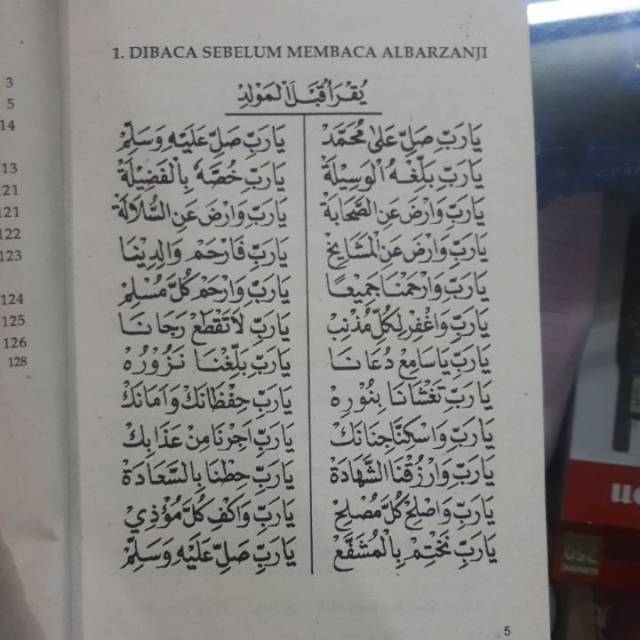 3
5
14
13
121
121
122
123
124
125
126
128
1. DIBACA SEBELUM MEMBACA ALBARZANJI
يُقْرَأُ قَبْلَ الْمَوْلِدِ
يَارَبِّ صَلِّ عَلَى مُحَمَّدْ يَارَبِّ صَلِّ عَلَيْهِ وَسَلِّمْ
يَارَبِّ بَلِّغْهُ الْوَسِيْلَةْ يَارَبِّ خُصَّهُ بِالْفَضِيْلَةْ
يَارَبِّ وَارْضَ عَنِ الصَّحَابَةْ يَارَبِّ وَارْضَ عَنِ السُّلَالَةْ
يَارَبِّ وَارْضَ عَنِ الْمَشَايِخْ يَارَبِّ فَارْحَمْ وَالِدِيْنَا
يَارَبِّ وَارْحَمْنَا جَمِيْعًا يَارَبِّ وَارْحَمْ كُلَّ مُسْلِمْ
يَارَبِّ وَاغْفِرْ لِكُلِّ مُذْنِبْ يَارَبِّ لَا تَقْطَعْ رَجَانَا
يَارَبِّ يَاسَامِعْ دُعَانَا يَارَبِّ بَلِّغْنَا نَزُوْرُهْ
يَارَبِّ تَغْشَانَا بِنُوْرِهْ يَارَبِّ حِفْظَانَكْ وَاَمَانَكْ
يَارَبِّ وَاسْكِنَّا جِنَانَكْ يَارَبِّ اَجِرْنَا مِنْ عَذَابِكْ
يَارَبِّ وَارْزُقْنَا الشَّهَادَةْ يَارَبِّ حِطْنَا بِالسَّعَادَةْ
يَارَبِّ وَاصْلِحْ كُلَّ مُصْلِحْ يَارَبِّ وَاكْفِ كُلَّ مُؤْذِيْ
يَارَبِّ نَخْتِمْ بِالْمُشَفَّعْ يَارَبِّ صَلِّ عَلَيْهِ وَسَلِّمْ
5